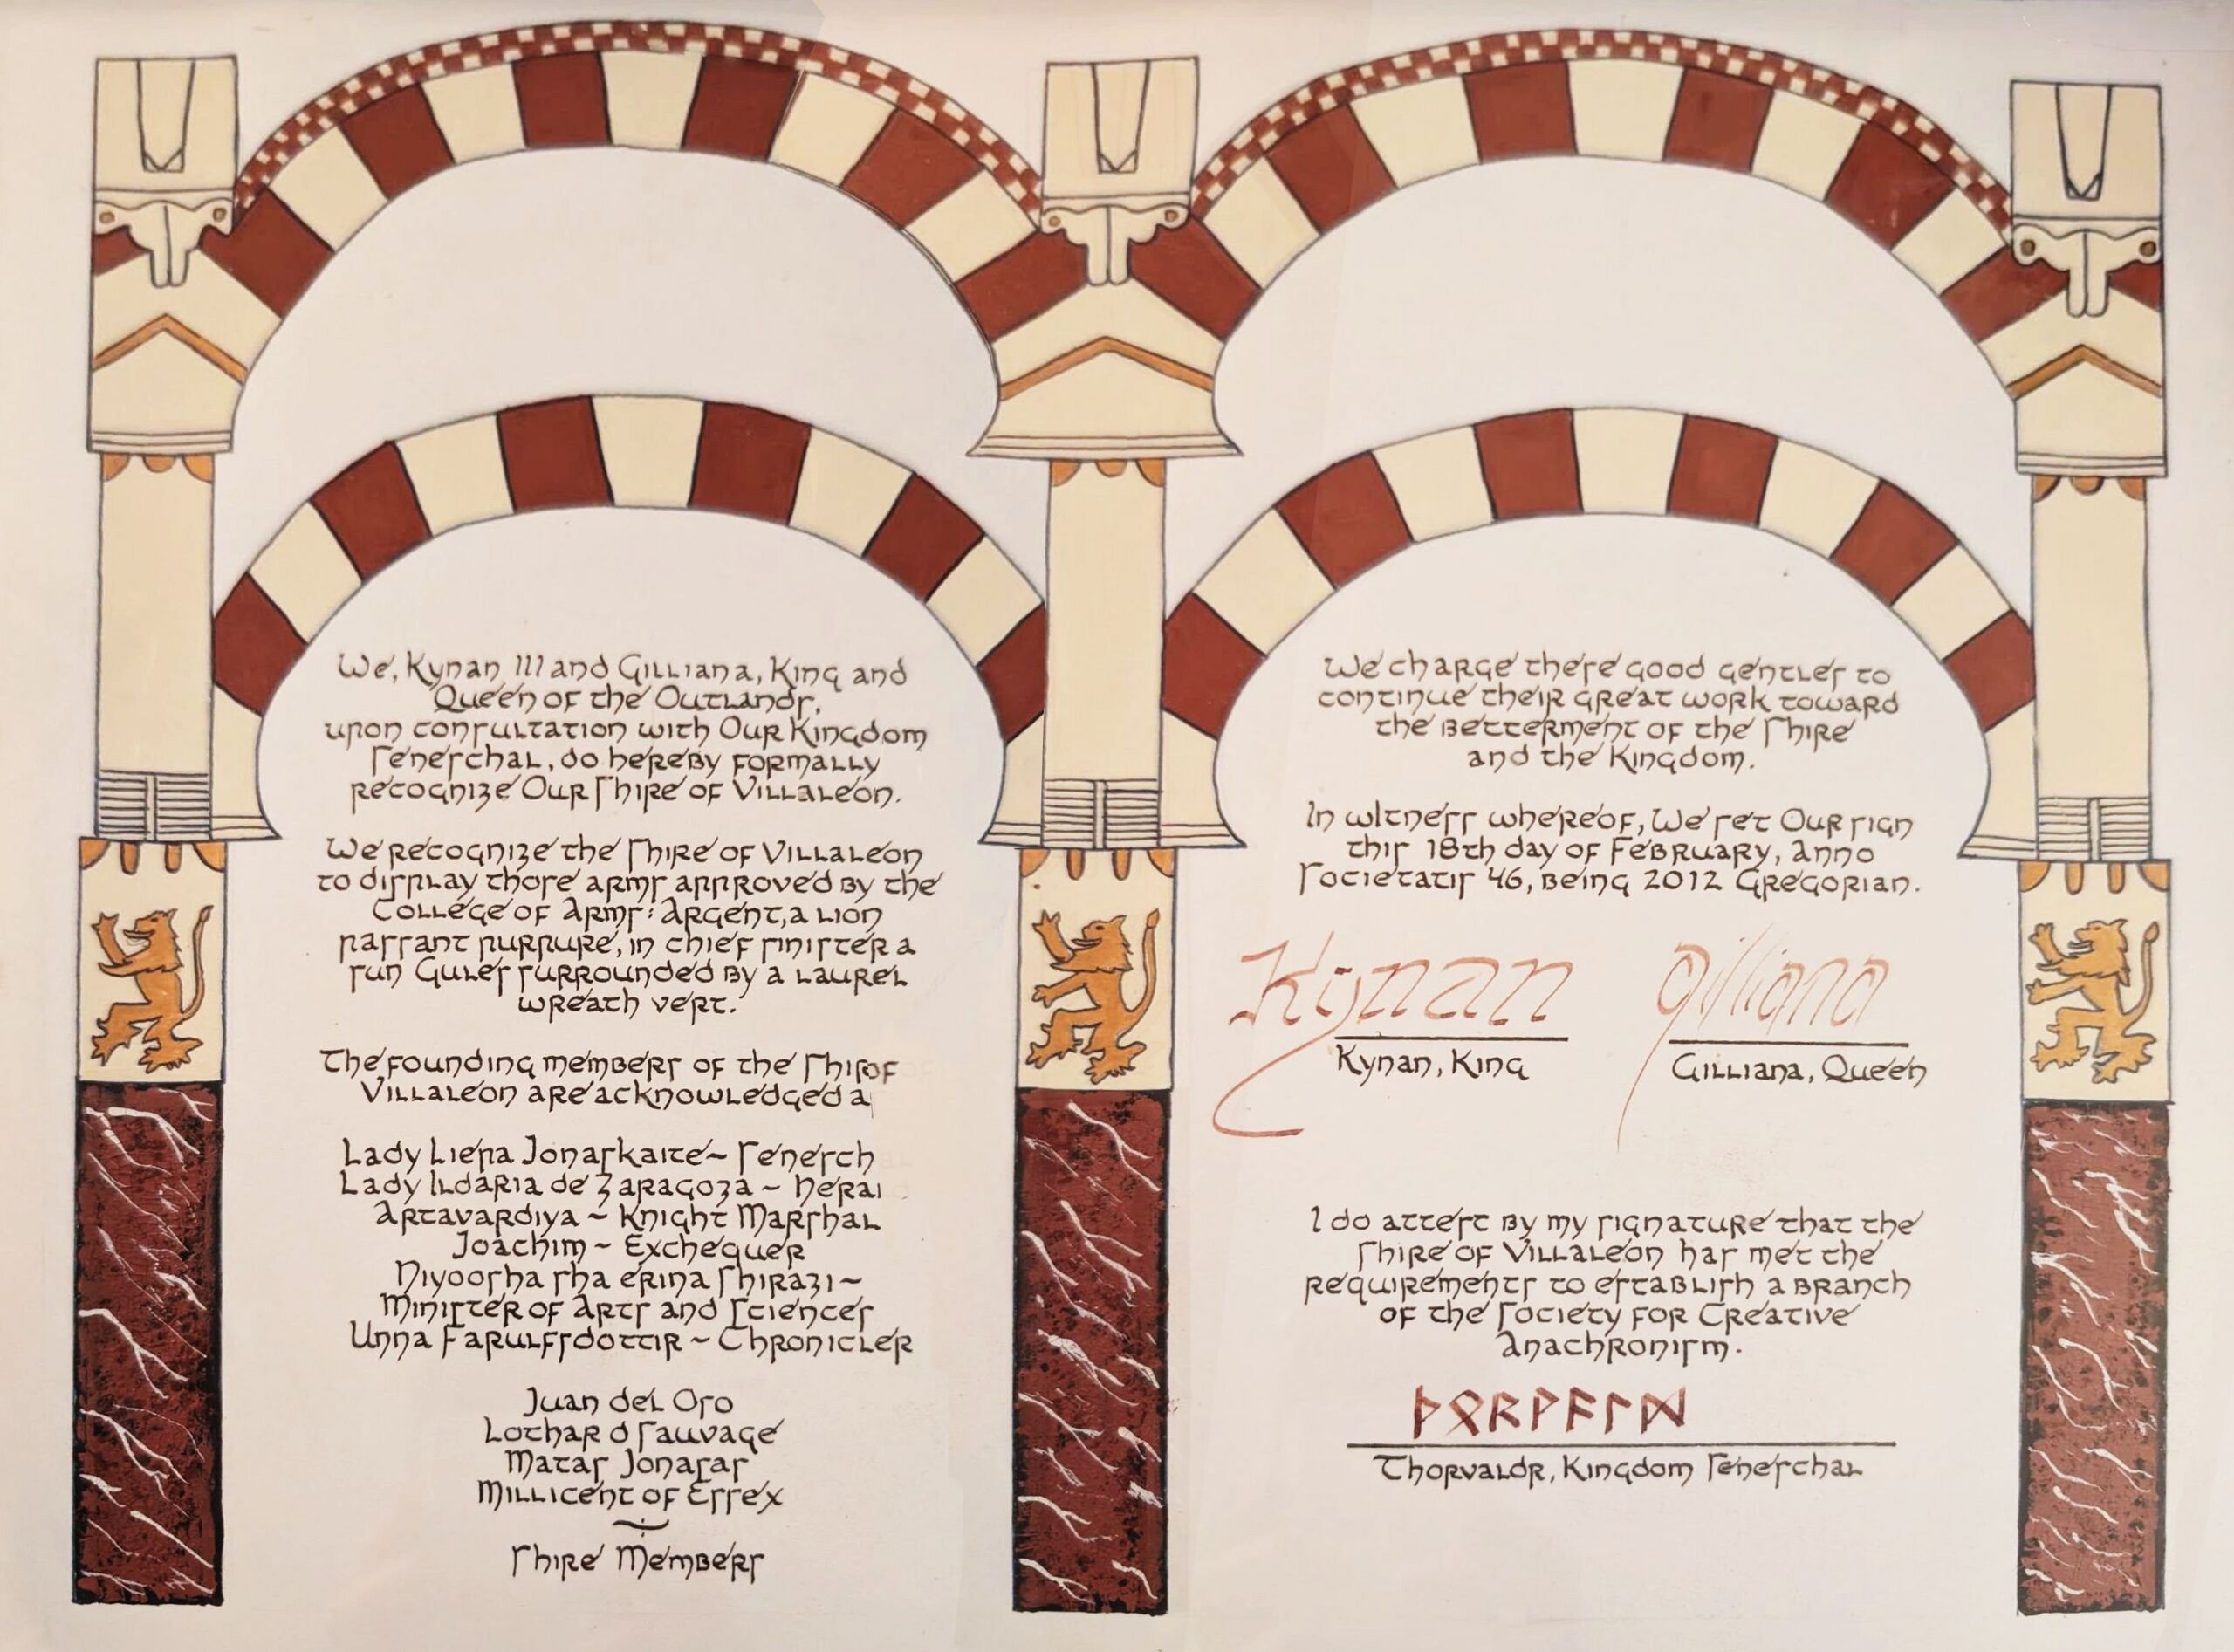 We, Kynan III and Gilliana, King and
Queen of the Outlands,
upon consultation with Our Kingdom
Seneschal, do hereby formally
recognize Our Shire of Villaleon.
We recognize the Shire of Villaleon
to display those arms approved by the
College of Arms: Argent, a lion
passant purpure, in chief sinister a
sun Gules surrounded by a laurel
wreath vert.
The founding members of the
Villaleon are acknowledged
Lady Liepa Jonaskaite~ Senesch
Lady Ildaria de Zaragoza ~
Artavardiya ~ Knight Marshal
Joachim ~ Exchequer
Niyoosha sha erina Shirazi ~
Minister of Arts and Sciences
Unna Farulfsdottir ~ Chronicler
Juan del Oso
Lothar d Sauvage
Matas Jonasas
Millicent of Essex
Shire Members
We charge these good gentles to
continue their great work toward
the betterment of the Shire
and the Kingdom.
In witness whereof, We set Our sign
this 18th day of February, Anno
Societatis 46, being 2012 Gregorian.
Kynan Gilliana
Kynan, King Gilliana, Queen
I do attest by my signature that the
Shire of Villaleon has met the
requirements to establish a branch
of the Society for Creative
Anachronism.
ᚦᛟᚱᚹᚨᛚᛞ
Thorvaldr, Kingdom Seneschal